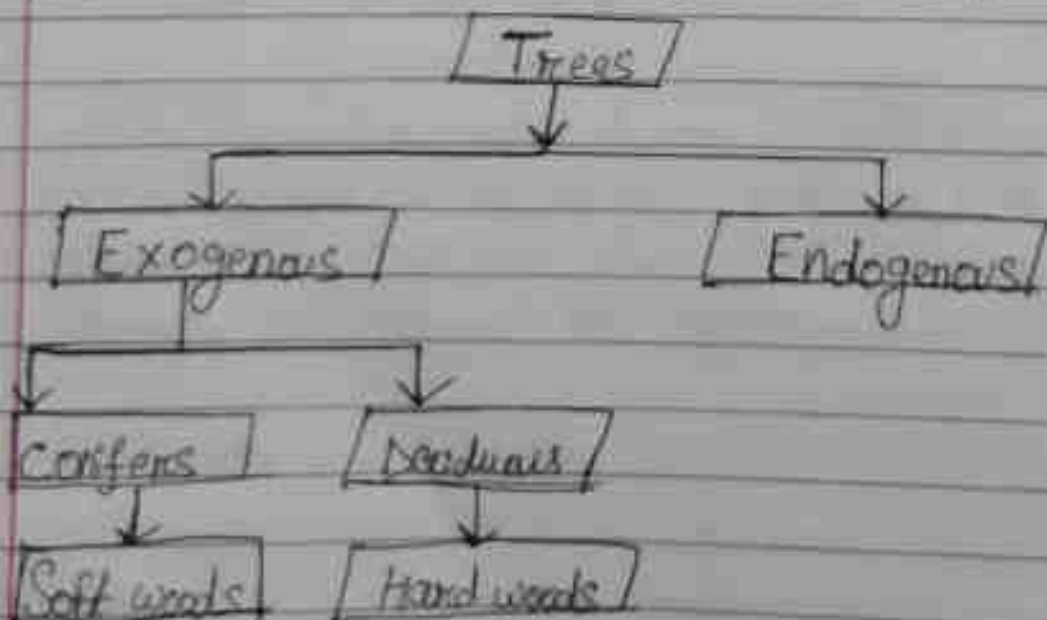 Trees
Exogenous Endogenous
Conifers Deciduous
Soft woods Hard woods